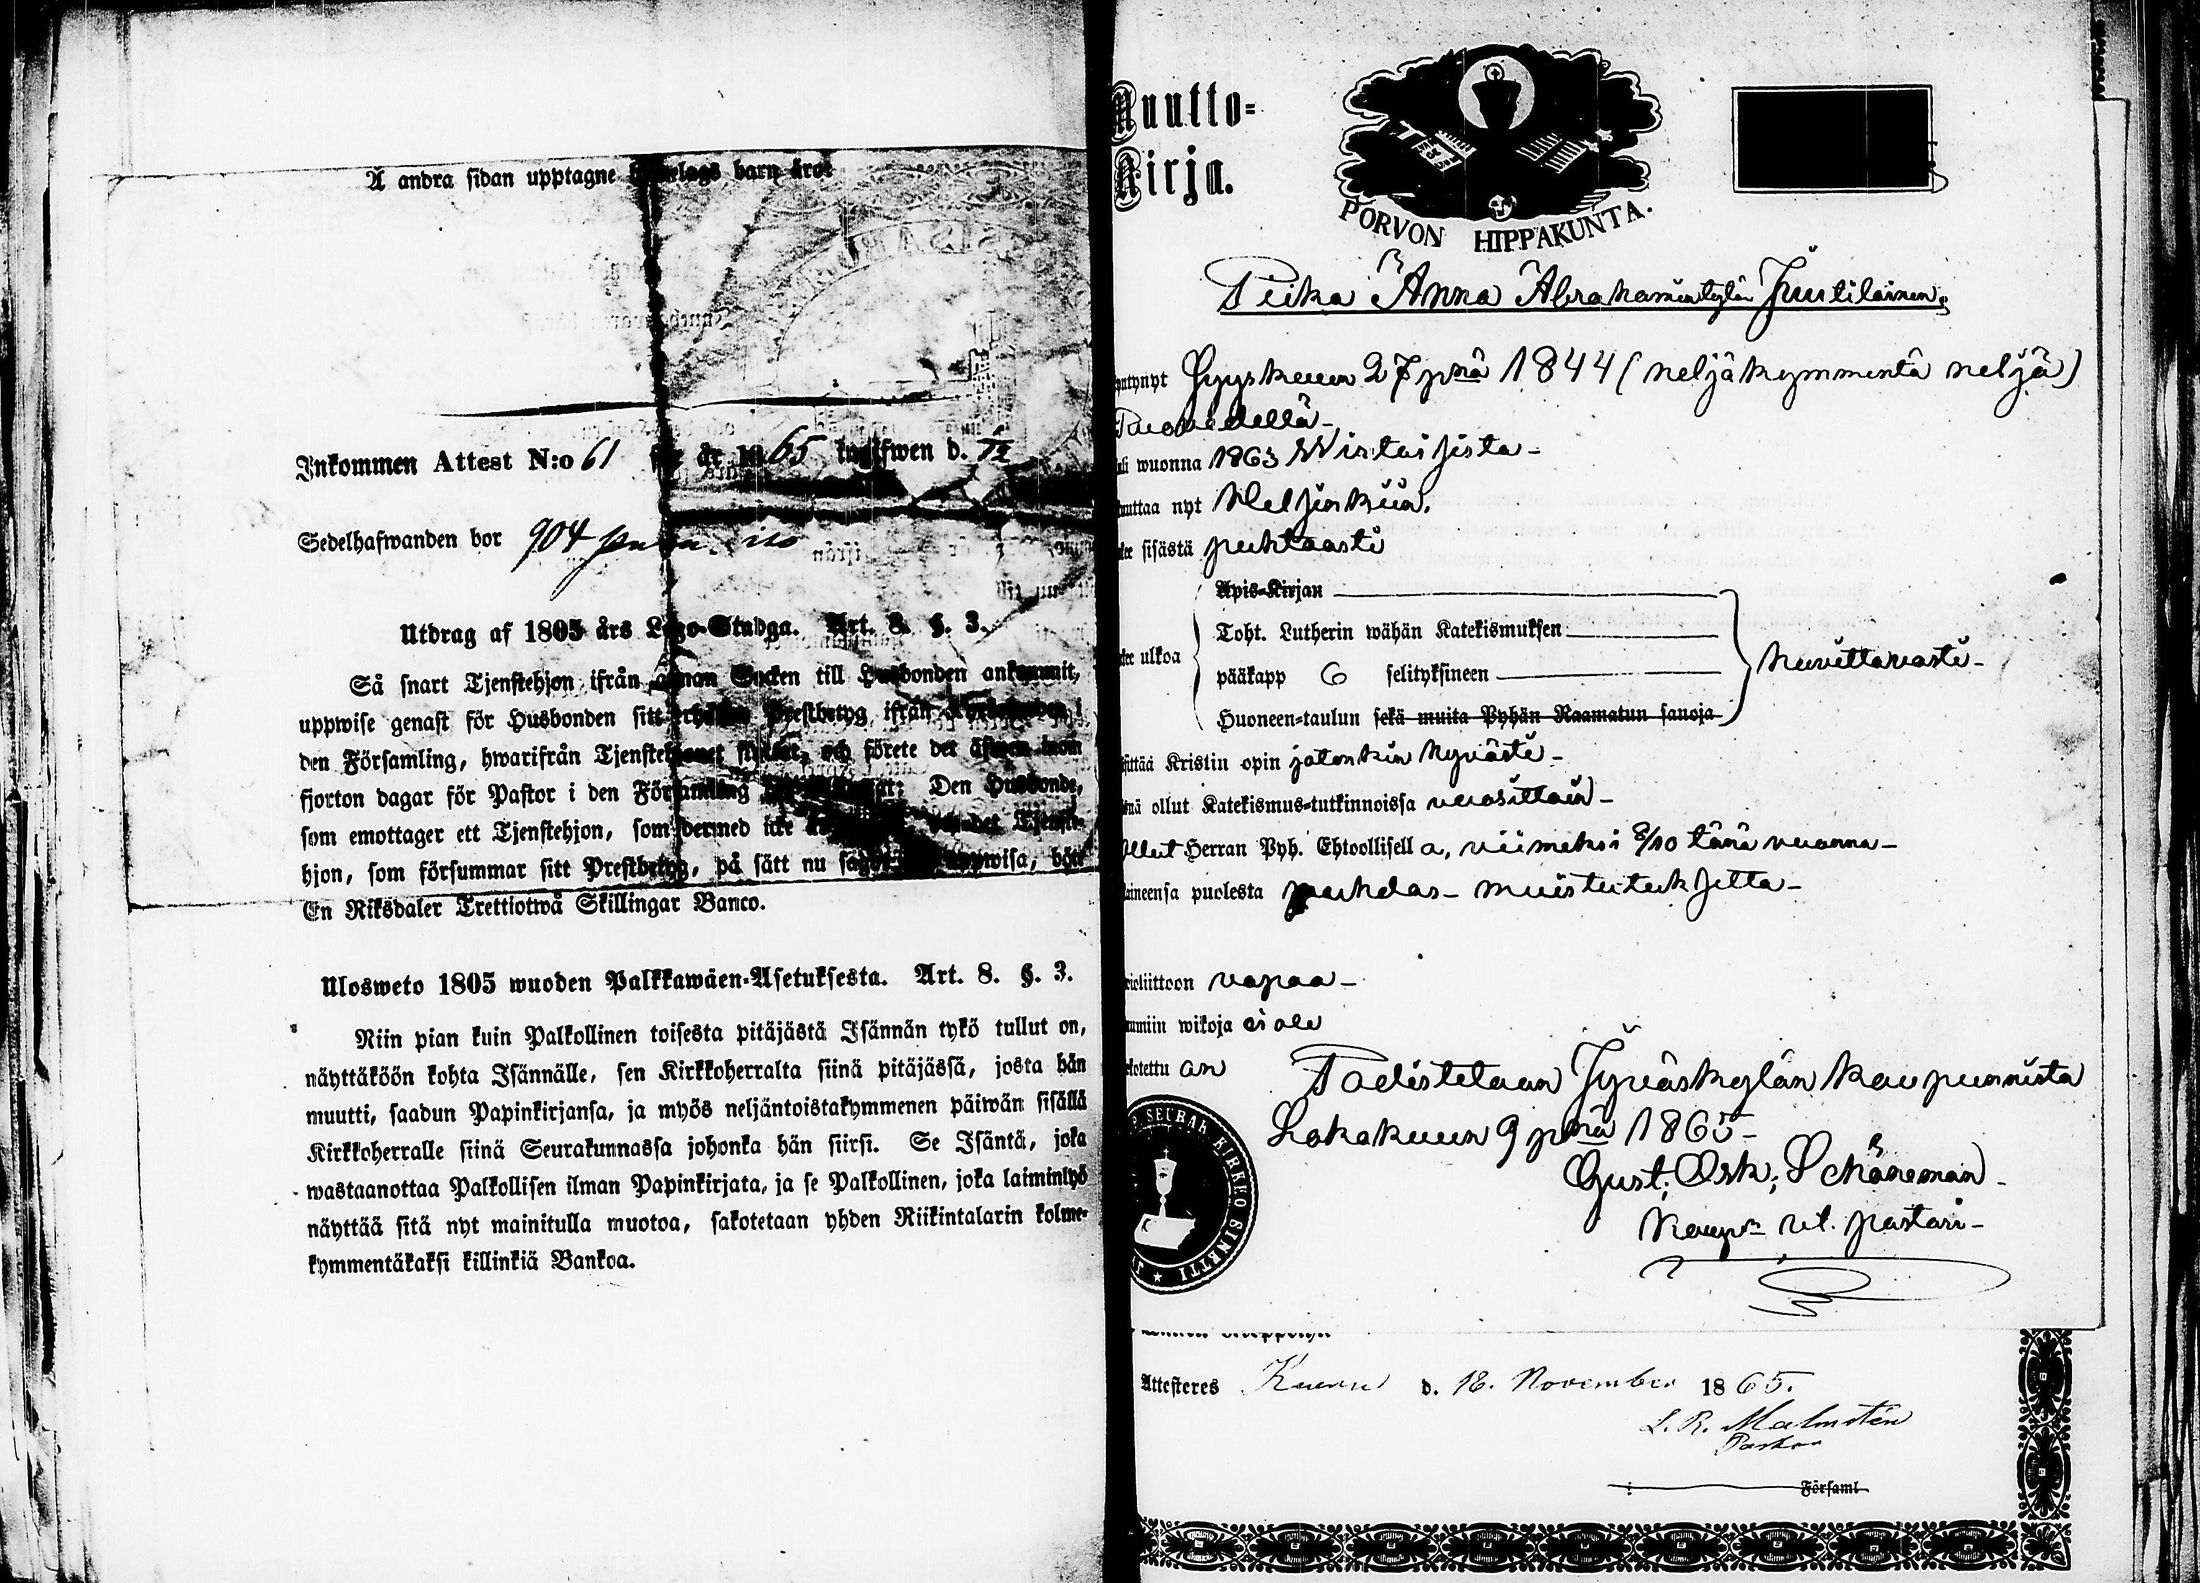 Å andra sidan upptagne barn äro:
Inkommen Attest N:o 61 för år 1865 d.
Sedelhafwanden bor 904
Utdrag af 1805 års Lego-Stadga. Art. 8. §. 3.
Så snart Tjenstehjon ifrån annan Socken till Husbonden ankommit,
uppwise genast för Husbonden sitt Prestbetyg ifrån i
den Församling, hwarifrån Tjenstehjonet och förete det inom
fjorton dagar för Pastor i den Församling Den Husbonde,
som emottager ett Tjenstehjon, som dermed icke det Tjenste-
hjon, som försummar sitt Prestbetyg, på sätt nu uppwisa, böte
En Riksdaler Trettiotwå Skillingar Banco.
Ulosweto 1805 wuoden Palkkawäen-Asetuksesta. Art. 8. §. 3.
Niin pian kuin Palkollinen toisesta pitäjästä Isännän tykö tullut on,
näyttäköön kohta Isännälle, sen Kirkkoherralta siinä pitäjässä, josta hän
muutti, saadun Papinkirjansa, ja myös neljäntoistakymmenen päiwän sisällä
Kirkkoherralle siinä Seurakunnassa johonka hän siirsi. Se Isäntä, joka
wastaanottaa Palkollisen ilman Papinkirjata, ja se Palkollinen, joka laiminlyö
näyttää sitä nyt mainitulla muotoa, sakotetaan yhden Riikintalarin kolme-
kymmentäkaksi killinkiä Bankoa.
Muutto-
Kirja.
PORVON HIPPAKUNTA.
Piika Anna Abrahamintytär Juutilainen
syntynyt Syyskuun 27 pnä 1844 (neljäkymmentä neljä)
tuli wuonna 1863
muuttaa nyt Helsinkiin.
lukee sisästä puhtaasti
Apis-Kirjan
Toht. Lutherin wähän Katekismuksen
lukee ulkoa
pääkapp 6 selityksineen
huwittavasti
Huoneen-taulun sekä muita Pyhän Raamatun sanoja
käsittää Kristin opin jotenkin hyvästi
ollut Katekismus-tutkinnoissa vuosittain
ollut Herran Pyh. Ehtoollisella, viimeksi 8/10 tänä vuonna
maineensa puolesta puhdas muistutuksetta
awioliittoon vapaa
ruumiin wikoja ei ole
rokotettu on
Todistetaan Jyväskylän kaupunnista
Lokakuun 9 pnä 1865
Gust. Osk. Schöneman
kaup:n vt. pastori
SEURAK KIRKKO SINETTI
Attesteres d. 18. November 1865.
L. R. Malmstén
Pastor
Församl